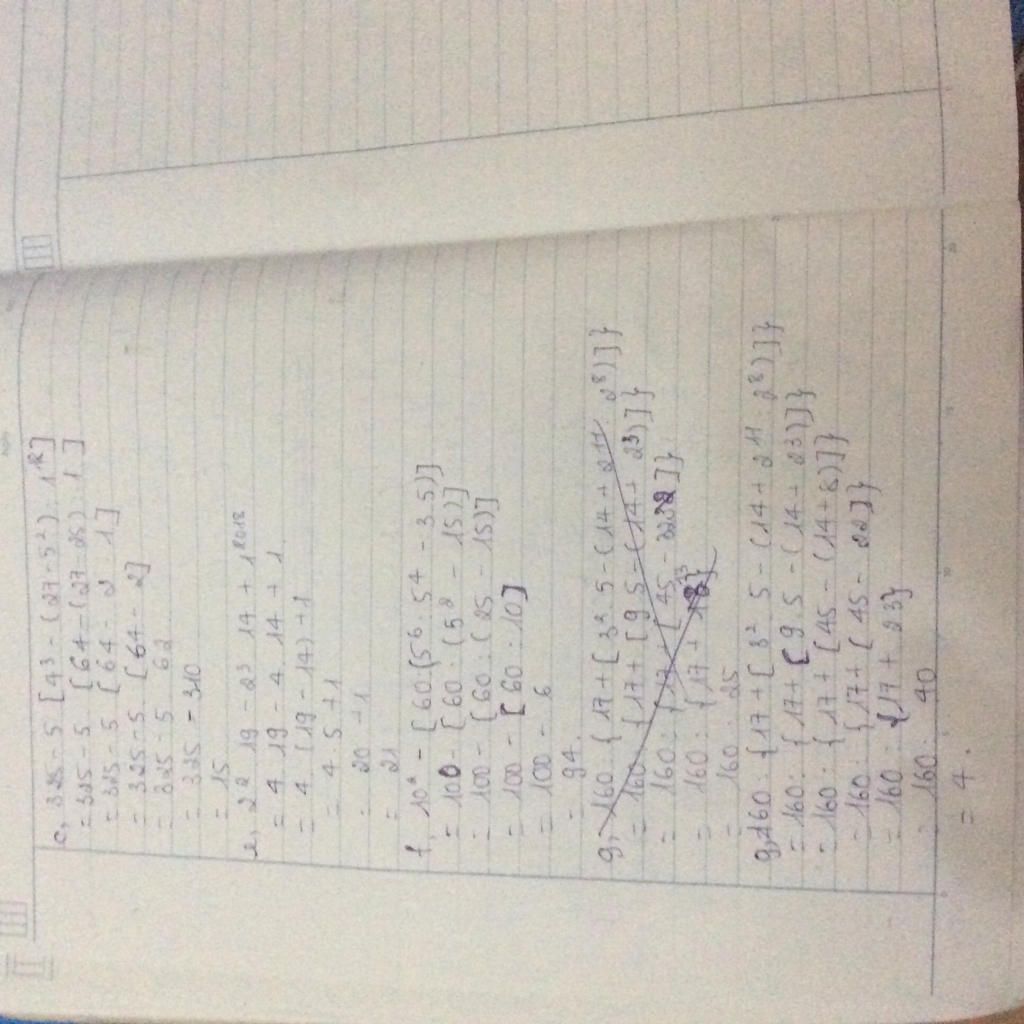 c, 325 - 5 [4³ - (27 - 5²) . 1¹²]
= 325 - 5 . [64 - (27 - 25) . 1 ]
= 325 - 5 [64 - 2 . 1]
= 325 - 5 . [64 - 2]
= 325 - 5 62
= 325 - 310
= 15
e, 2² 19 - 2³ 14 + 1²⁰¹⁸
= 4 19 - 4 . 14 + 1
= 4 . (19 - 14) + 1
= 4 . 5 + 1
= 20 + 1
= 21
f, 10² - [60 : (5⁶ : 5⁴ - 3 5)]
= 100 - [60 : (5² - 15)]
= 100 - [60 : (25 - 15)]
= 100 - [60 : 10]
= 100 - 6
= 94.
g, 160 : {17 + [3² 5 - (14 + 2¹¹ : 2⁸)]}
= 160 : {17 + [9 5 - (14 + 2³)]}
= 160 : {17 + [45 -
= 160 : {17 +
= 160 : 25
g, 160 : {17 + [3² 5 - (14 + 2¹¹ : 2⁸)]}
= 160 : {17 + [9 . 5 - (14 + 2³)]}
= 160 : {17 + [45 - (14 + 8)]}
= 160 : {17 + [45 - 22]}
= 160 : {17 + 23}
= 160 : 40
= 4 .